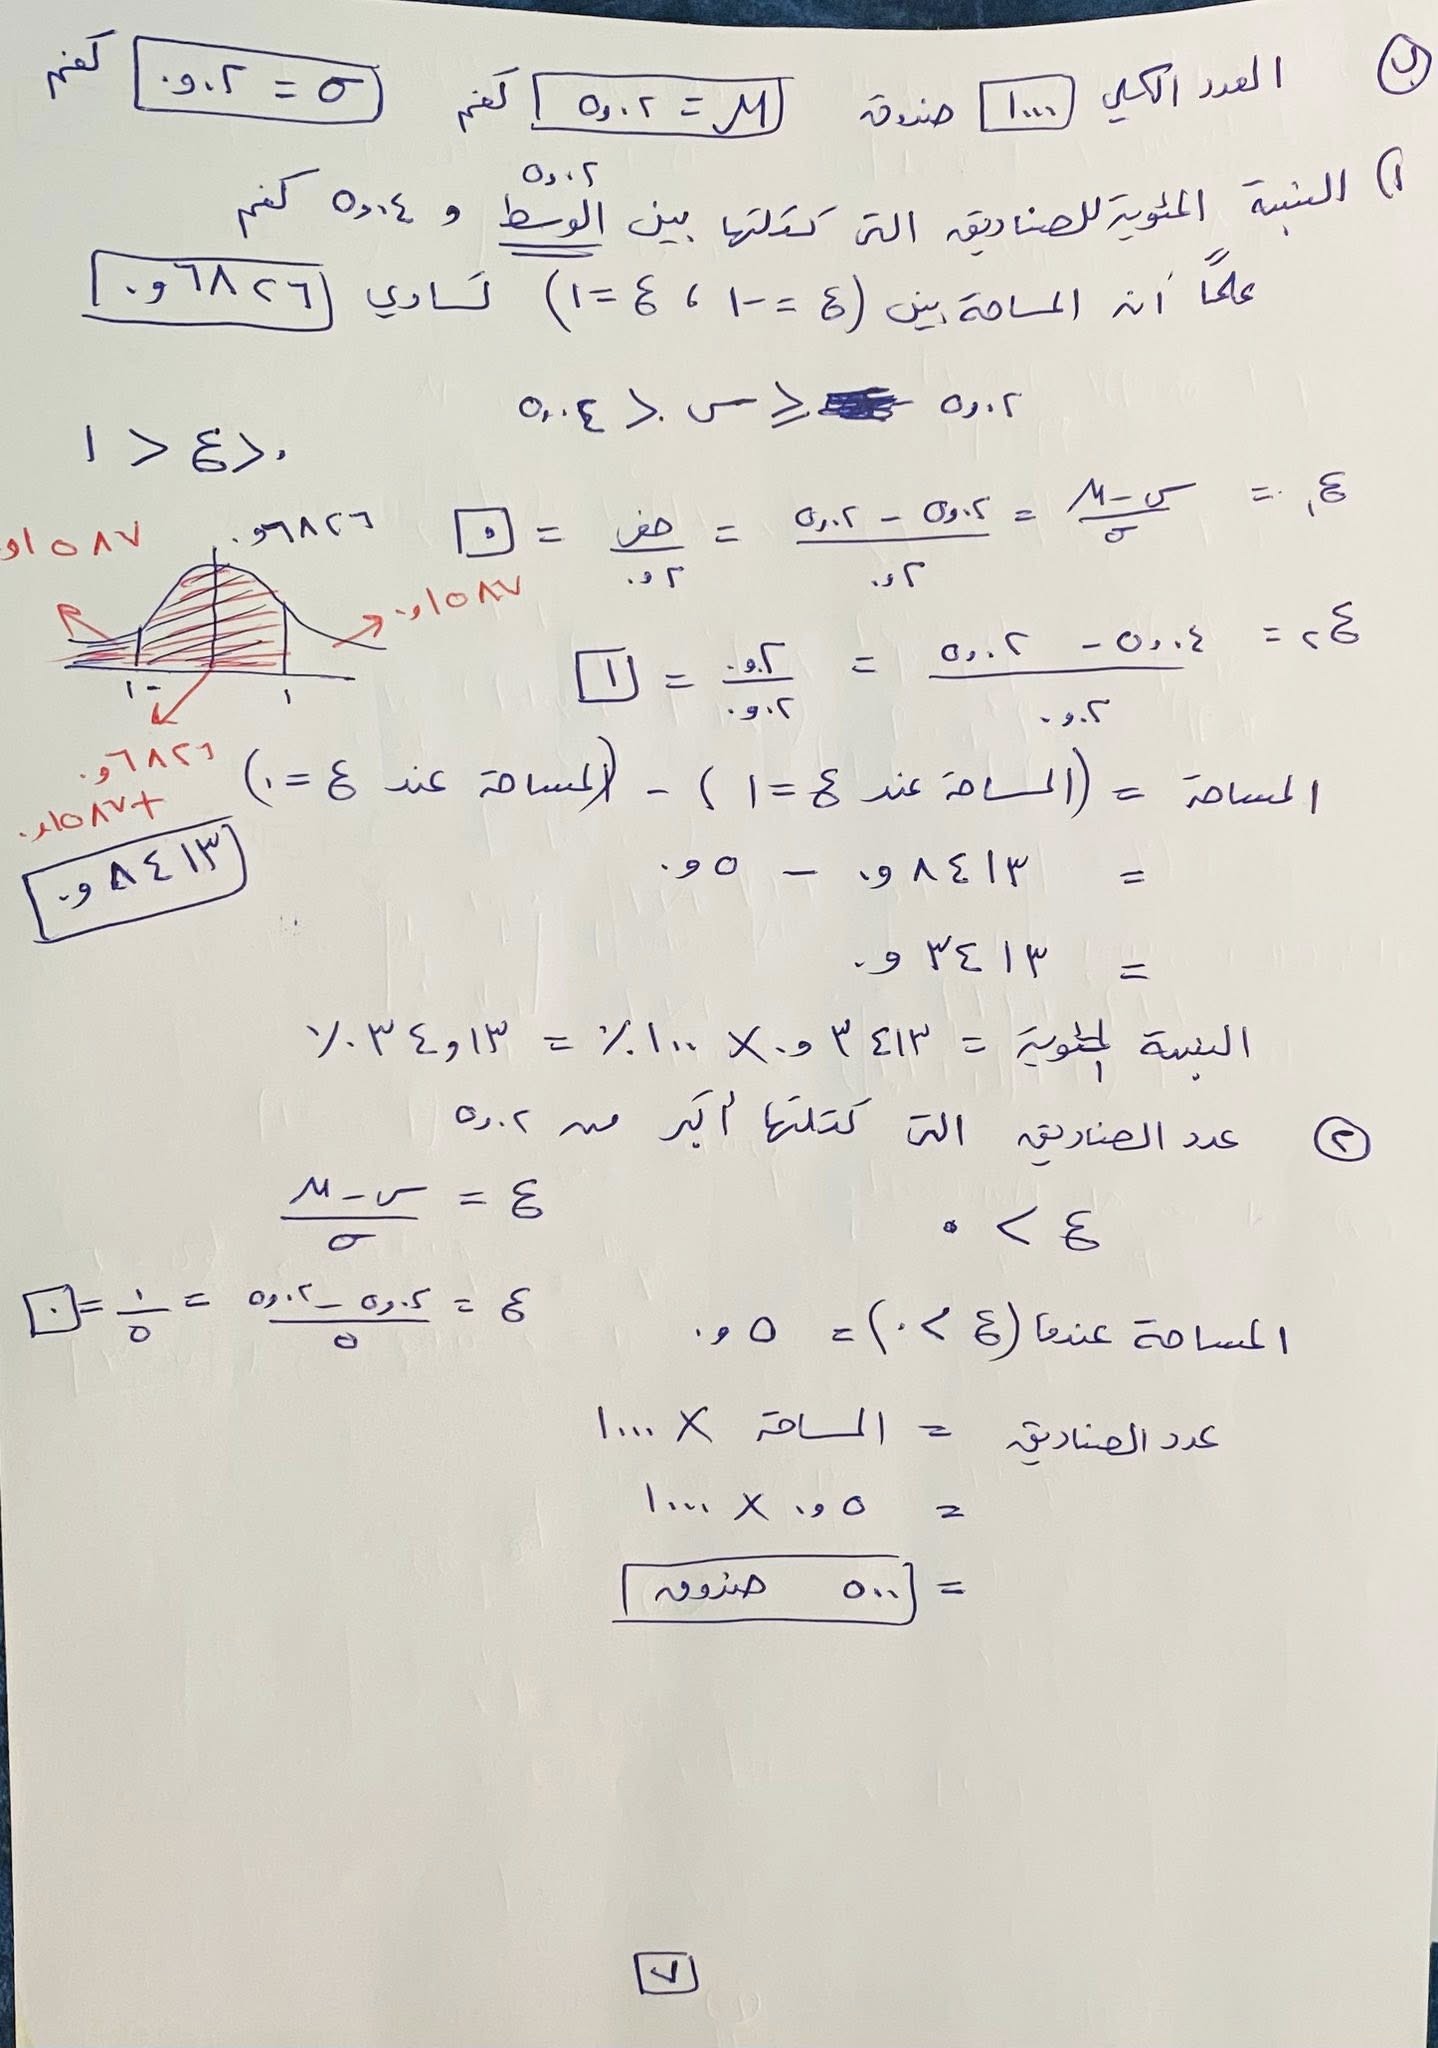 ب) العدد الكلي ١٠٠٠ صندوق μ = ٥,٠٢ كغم σ = ٠,٠٢ كغم
٥,٠٢
١) النسبة المئوية للصناديق التي كتلتها بين الوسط و ٥,٠٤ كغم
علمًا أن المساحة بين (ع = -١ ، ع = ١) تساوي ٠,٦٨٢٦
٥,٠٢ ≤ س < ٥,٠٤
٠ < ع < ١
ع١ = (س - μ) / σ = (٥,٠٢ - ٥,٠٢) / ٠,٠٢ = صفر / ٠,٠٢ = ٠
ع٢ = (٥,٠٤ - ٥,٠٢) / ٠,٠٢ = ٠,٠٢ / ٠,٠٢ = ١
٠,٦٨٢٦
٠,١٥٨٧
٠,١٥٨٧
-١ ١
٠,٦٨٢٦
+ ٠,١٥٨٧
٠,٨٤١٣
المساحة = (المساحة عند ع = ١) - (المساحة عند ع = ٠)
= ٠,٨٤١٣ - ٠,٥
= ٠,٣٤١٣
النسبة المئوية = ٠,٣٤١٣ × ١٠٠٪ = ٣٤,١٣٪
٢ عدد الصناديق التي كتلتها أكبر من ٥,٠٢
ع > ٠
ع = (س - μ) / σ
ع = (٥,٠٢ - ٥,٠٢) / ٥ = ٠ / ٥ = ٠
المساحة عندما (ع > ٠) = ٠,٥
عدد الصناديق = المساحة × ١٠٠٠
= ٠,٥ × ١٠٠٠
= ٥٠٠ صندوق
٧